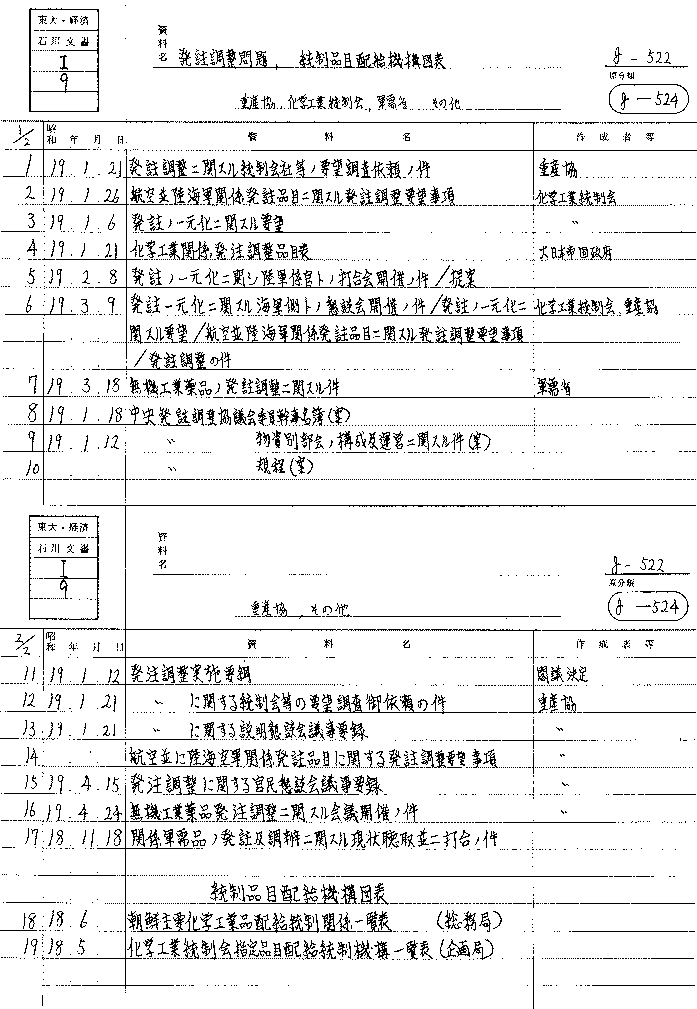 東大・経済
石川文書
I
9
資料名 発註調整問題, 統制品目配給機構図表
g - 522
原分類
g - 524
重産協, 化学工業統制会, 軍需省 その他
1/2 昭和 年 月 日 資料名 作成者等
1 19.1.21 発註調整ニ関スル統制会社等ノ要望調査依頼ノ件 重産協
2 19.1.26 航空並陸海軍関係発註品目ニ関スル発註調整要望事項 化学工業統制会
3 19.1.6 発註ノ一元化ニ関スル要望 〃
4 19.1.21 化学工業関係発注調整品目表 大日本帝国政府
5 19.2.8 発註ノ一元化ニ関シ陸軍係官トノ打合会開催ノ件/提案
6 19.3.9 発註一元化ニ関スル海軍側トノ懇談会開催ノ件/発註ノ一元化ニ 化学工業統制会 重産協
関スル要望/航空並陸海軍関係発註品目ニ関スル発註調整要望事項
/発註調整の件
7 19.3.18 無機工業薬品ノ発註調整ニ関スル件 軍需省
8 19.1.18 中央発註調整協議会委員幹事名簿(案)
9 19.1.12 〃 物資別部会ノ構成及運営ニ関スル件(案)
10 〃 規程(案)
東大・経済
石川文書
I
9
資料名
g - 522
原分類
g - 524
重産協, その他
2/2 昭和 年 月 日 資料名 作成者等
11 19.1.12 発注調整実施要綱 閣議決定
12 19.1.21 〃 に関する統制会等の要望調査御依頼の件 重産協
13 19.1.21 〃 に関する説明懇談会議事要録 〃
14 航空並に陸海空軍関係発註品目に関する発註調整要望事項 〃
15 19.4.15 発注調整に関する官民懇談会議事要録 〃
16 19.4.24 無機工業薬品発注調整ニ関スル会議開催ノ件 〃
17 18.11.18 関係軍需品ノ発註及調弁ニ関スル現状聴取並ニ打合ノ件
統制品目配給機構図表
18 18.6 朝鮮主要化学工業品配給統制関係一覧表 (総務局)
19 18.5 化学工業統制会指定品目配給統制機構一覧表(企画局)